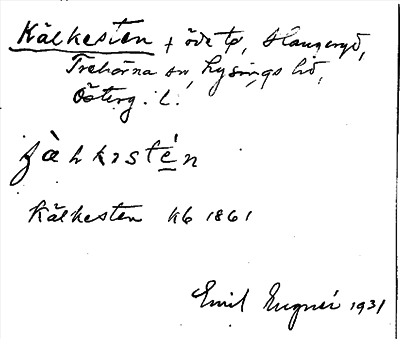 Kälkesten + öde tp, Haugengd,
Trehörna sn, Lysings hd,
Österg. l.
kälkesten
Kälkesten kb 1861
Emil Eugnér 1931